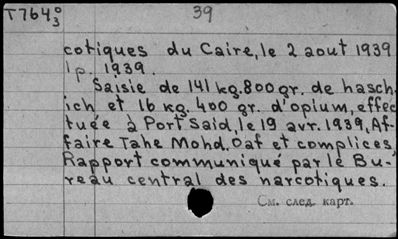 T7640 39
3
cotiques du Caire, le 2 aout 1939
1p. 1939.
Saisie de 141 kg. 800 gr. de hasch-
ich et 16 kg. 400 gr. d'opium, effec
tuée à Port Said, le 19 avr. 1939, Af-
faire Tahe Mohd. Oaf et complices.
Rapport communiqué par le Bu-
reau central des narcotiques.
См. след. карт.